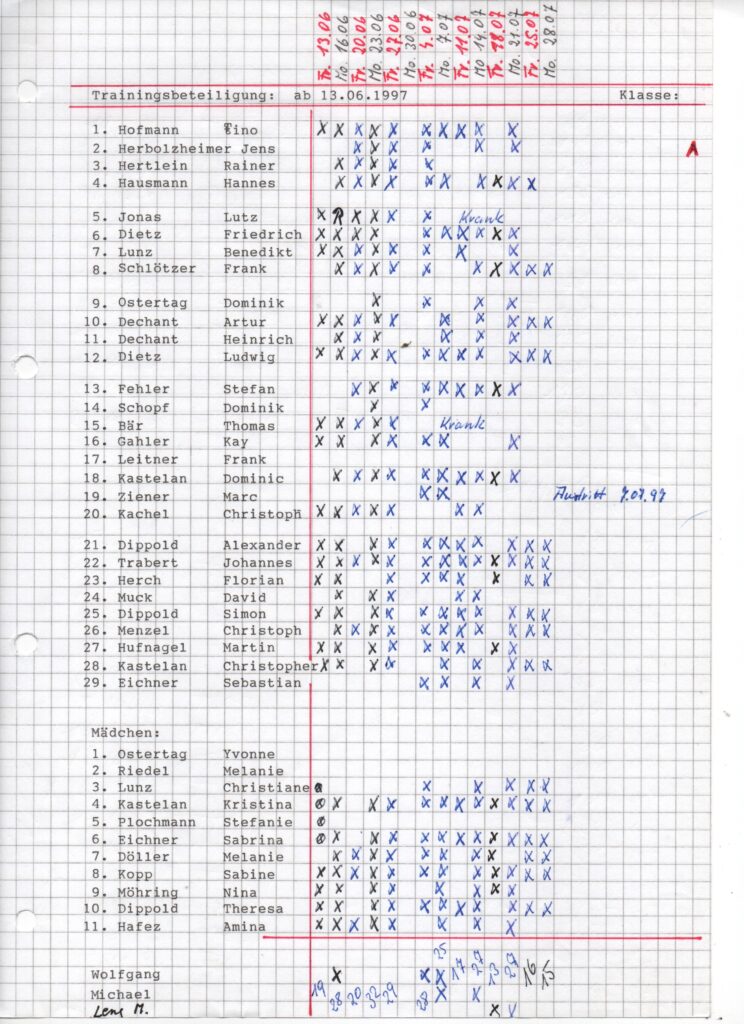 Fr. 13.06 Mo. 16.06 Fr. 20.06 Mo. 23.06 Fr. 27.06 Mo. 30.06 Fr. 4.07 Mo. 7.07 Fr. 11.07 Mo 14.07 Fr. 18.07 Mo. 21.07 Fr. 25.07 Mo. 28.07
Trainingsbeteiligung: ab 13.06.1997 Klasse:
1. Hofmann Tino
2. Herbolzheimer Jens
3. Hertlein Rainer
4. Hausmann Hannes
5. Jonas Lutz Krank
6. Dietz Friedrich
7. Lunz Benedikt
8. Schlötzer Frank
9. Ostertag Dominik
10. Dechant Artur
11. Dechant Heinrich
12. Dietz Ludwig
13. Fehler Stefan
14. Schopf Dominik
15. Bär Thomas Krank
16. Gahler Kay
17. Leitner Frank
18. Kastelan Dominic
19. Ziener Marc Austritt 7.07.97
20. Kachel Christoph
21. Dippold Alexander
22. Trabert Johannes
23. Herch Florian
24. Muck David
25. Dippold Simon
26. Menzel Christoph
27. Hufnagel Martin
28. Kastelan Christopher
29. Eichner Sebastian
Mädchen:
1. Ostertag Yvonne
2. Riedel Melanie
3. Lunz Christiane
4. Kastelan Kristina
5. Plochmann Stefanie
6. Eichner Sabrina
7. Döller Melanie
8. Kopp Sabine
9. Möhring Nina
10. Dippold Theresa
11. Hafez Amina
Wolfgang 25 17 27 13 27 16 15
Michael 19 28 20 32 29 28
M.